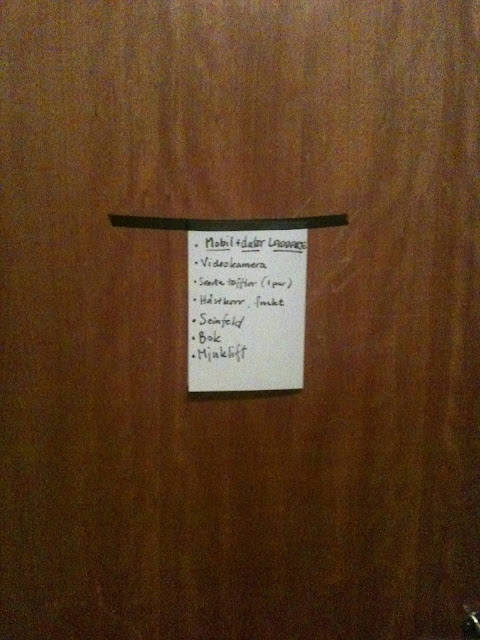 • Mobil + dator LADDARE
• Videokamera
• Svarta tofflor (1 par)
• Hästkorv, frukt
• Seinfeld
• Bok
• Mjuklift